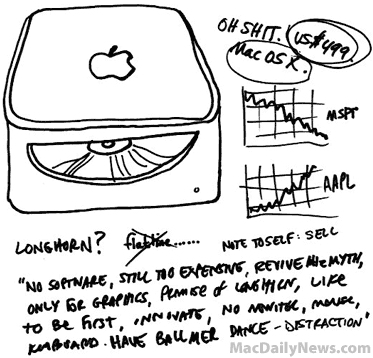 OH SHIT. US$499.
Mac OS X.
MSFT
AAPL
LONGHORN? flatline......
NOTE TO SELF: SELL
"NO SOFTWARE, STILL TOO EXPENSIVE, REVIVE MHZ MYTH,
ONLY FOR GRAPHICS, PROMISE OF LONGHORN, LIKE
TO BE FIRST, INNOVATE, NO MONITOR, MOUSE,
KEYBOARD. HAVE BALLMER DANCE - DISTRACTION"
MacDailyNews.com